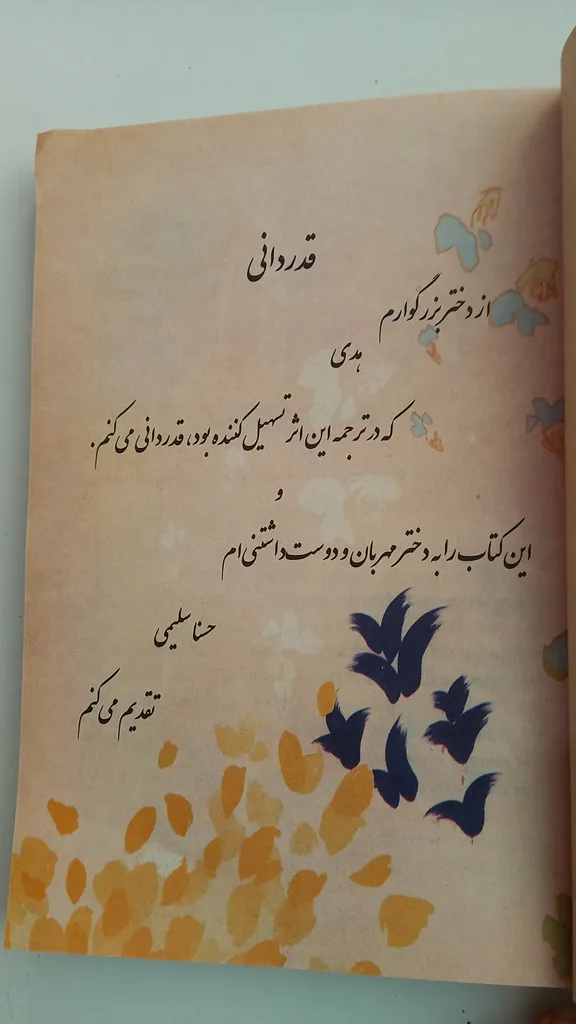 قدردانی
از دختر بزرگوارم
هدی
که در ترجمه این اثر تسهیل کننده بود، قدردانی می کنم.
و
این کتاب را به دختر مهربان و دوست داشتنی ام
حسنا سلیمی
تقدیم می کنم